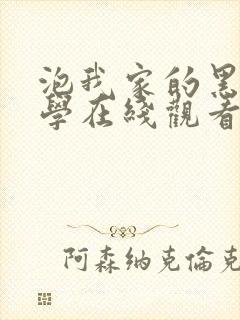 泡我家的黑
學在綫觀看
阿森纳克倫克